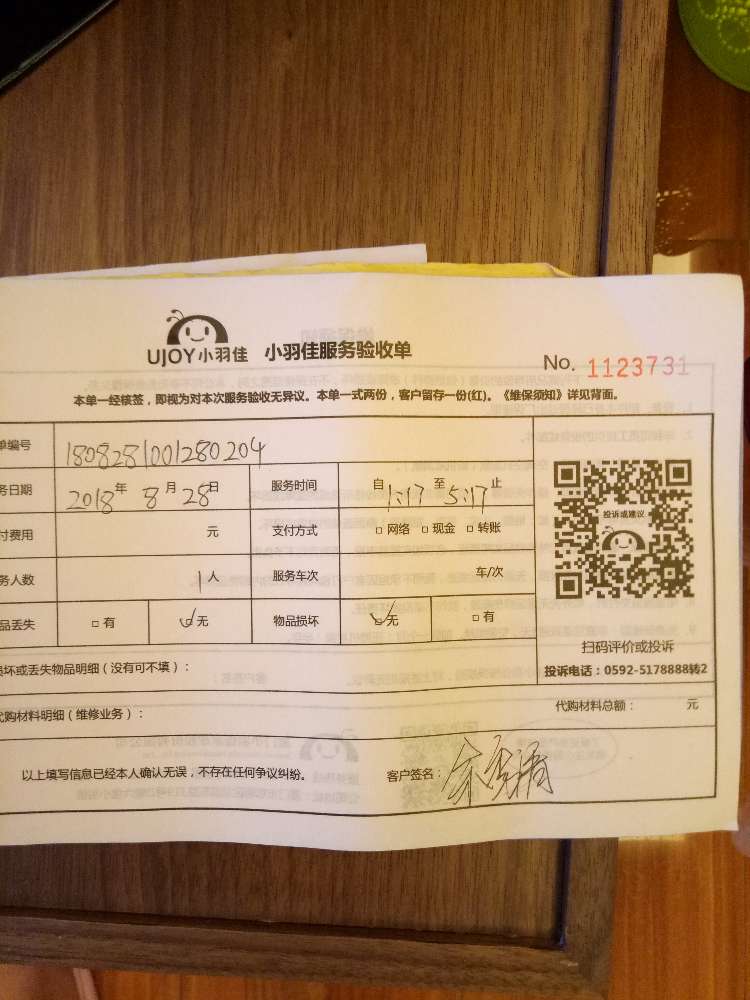 UJOY小羽佳 小羽佳服务验收单
No. 1123731
本单一经核签，即视为对本次服务验收无异议。本单一式两份，客户留存一份(红)。《维保须知》详见背面。
单编号 1808281001280204
务日期 2018年 8月 28日 服务时间 自 1:17 至 5:17 止
付费用 元 支付方式 □ 网络 □ 现金 □ 转账
务人数 1人 服务车次 车/次
品丢失 □ 有 ☑ 无 物品损坏 ☑ 无 □ 有
投诉或建议
扫码评价或投诉
投诉电话：0592-5178888转2
损坏或丢失物品明细（没有可不填）：
代购材料明细（维修业务）： 代购材料总额： 元
以上填写信息已经本人确认无误，不存在任何争议纠纷。 客户签名：